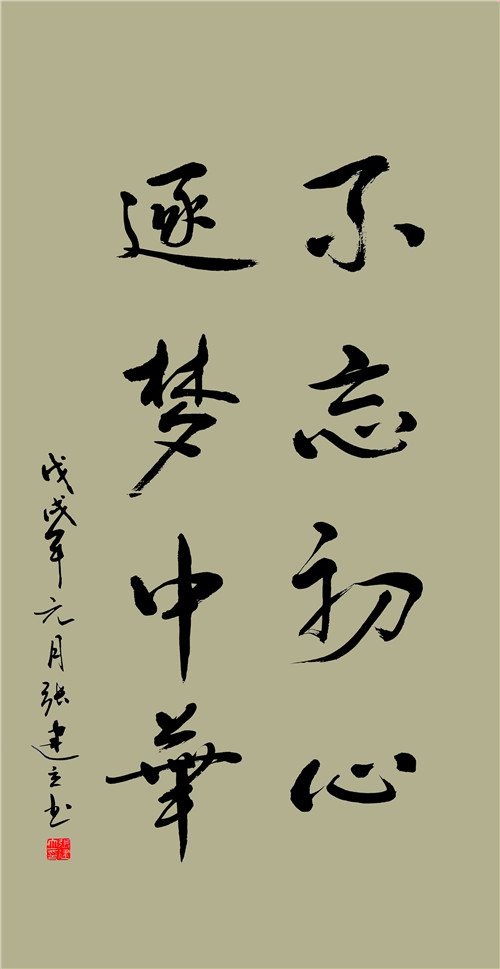 不忘初心
逐梦中華
戊戌年元月张建立书